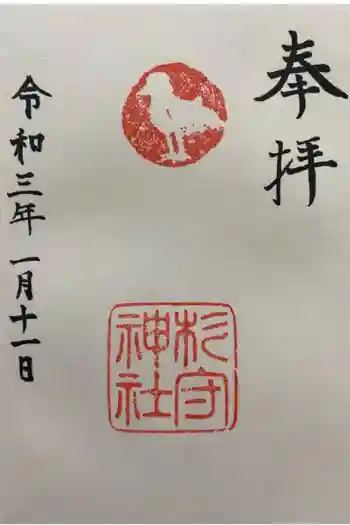 奉拝
杉守
神社
令和三年一月十一日